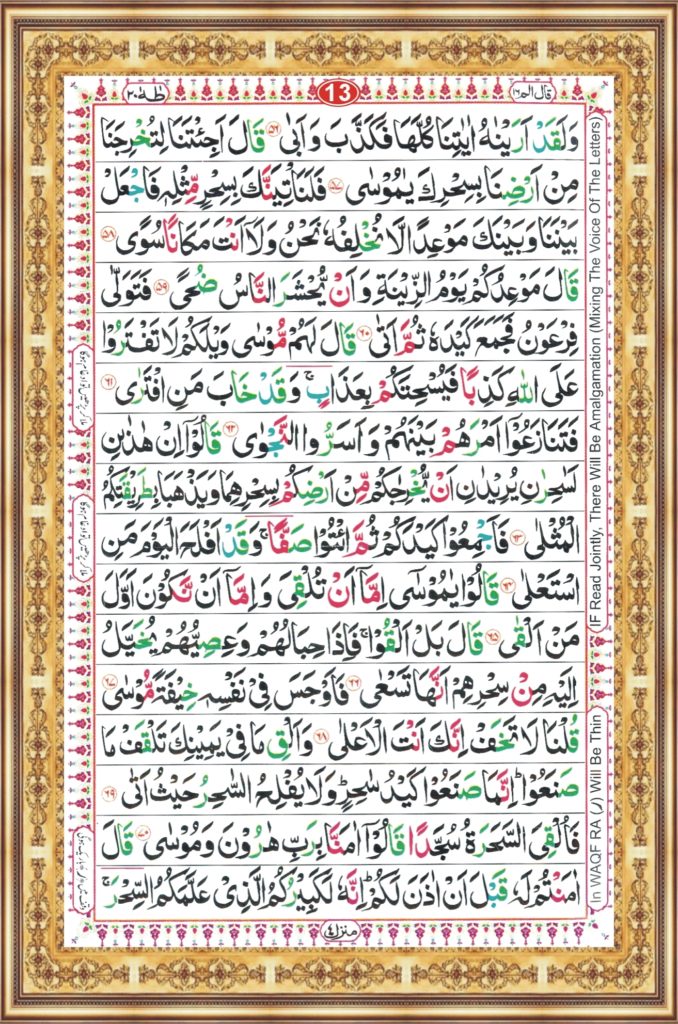 قال الم ١٦
13
طٰهٰ ٢٠
وَلَقَدْ اَرَيْنٰهُ اٰيٰتِنَا كُلَّهَا فَكَذَّبَ وَاَبٰى ﴿٥٦﴾ قَالَ اَجِئْتَنَا لِتُخْرِجَنَا
مِنْ اَرْضِنَا بِسِحْرِكَ يٰمُوْسٰى ﴿٥٧﴾ فَلَنَاْتِيَنَّكَ بِسِحْرٍ مِّثْلِهٖ فَاجْعَلْ
بَيْنَنَا وَبَيْنَكَ مَوْعِدًا لَّا نُخْلِفُهٗ نَحْنُ وَلَاۤ اَنْتَ مَكَانًا سُوًى ﴿٥٨﴾
قَالَ مَوْعِدُكُمْ يَوْمُ الزِّيْنَةِ وَاَنْ يُّحْشَرَ النَّاسُ ضُحًى ﴿٥٩﴾ فَتَوَلّٰى
فِرْعَوْنُ فَجَمَعَ كَيْدَهٗ ثُمَّ اَتٰى ﴿٦٠﴾ قَالَ لَهُمْ مُّوْسٰى وَيْلَكُمْ لَا تَفْتَرُوْا
عَلَى اللّٰهِ كَذِبًا فَيُسْحِتَكُمْ بِعَذَابٍ ۚ وَقَدْ خَابَ مَنِ افْتَرٰى ﴿٦١﴾
فَتَنَازَعُوْۤا اَمْرَهُمْ بَيْنَهُمْ وَاَسَرُّوا النَّجْوٰى ﴿٦٢﴾ قَالُوْۤا اِنْ هٰذٰىنِ
لَسٰحِرٰنِ يُرِيْدٰنِ اَنْ يُّخْرِجٰكُمْ مِّنْ اَرْضِكُمْ بِسِحْرِهِمَا وَيَذْهَبَا بِطَرِيْقَتِكُمُ
الْمُثْلٰى ﴿٦٣﴾ فَاَجْمِعُوْا كَيْدَكُمْ ثُمَّ ائْتُوْا صَفًّا ۚ وَقَدْ اَفْلَحَ الْيَوْمَ مَنِ
اسْتَعْلٰى ﴿٦٤﴾ قَالُوْا يٰمُوْسٰۤى اِمَّاۤ اَنْ تُلْقِيَ وَاِمَّاۤ اَنْ نَّكُوْنَ اَوَّلَ
مَنْ اَلْقٰى ﴿٦٥﴾ قَالَ بَلْ اَلْقُوْا ۚ فَاِذَا حِبَالُهُمْ وَعِصِيُّهُمْ يُخَيَّلُ
اِلَيْهِ مِنْ سِحْرِهِمْ اَنَّهَا تَسْعٰى ﴿٦٦﴾ فَاَوْجَسَ فِيْ نَفْسِهٖ خِيْفَةً مُّوْسٰى ﴿٦٧﴾
قُلْنَا لَا تَخَفْ اِنَّكَ اَنْتَ الْاَعْلٰى ﴿٦٨﴾ وَاَلْقِ مَا فِيْ يَمِيْنِكَ تَلْقَفْ مَا
صَنَعُوْا ؕ اِنَّمَا صَنَعُوْا كَيْدُ سٰحِرٍ ؕ وَلَا يُفْلِحُ السّٰحِرُ حَيْثُ اَتٰى ﴿٦٩﴾
فَاُلْقِيَ السَّحَرَةُ سُجَّدًا قَالُوْۤا اٰمَنَّا بِرَبِّ هٰرُوْنَ وَمُوْسٰى ﴿٧٠﴾ قَالَ
اٰمَنْتُمْ لَهٗ قَبْلَ اَنْ اٰذَنَ لَكُمْ ؕ اِنَّهٗ لَكَبِيْرُكُمُ الَّذِيْ عَلَّمَكُمُ السِّحْرَ ۚ
منزل ٤
IF Read Jointly, There Will Be Amalgamation (Mixing The Voice Of The Letters)
In WAQF RA (ر) Will Be Thin